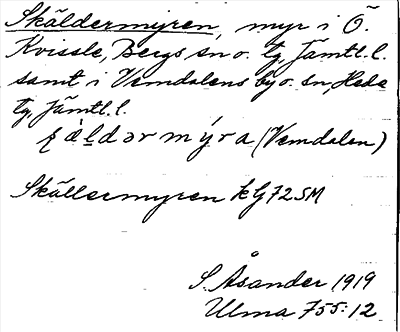 Skäldermyren, myr i Ö.
Kvissle, Bergs sn o. tg, Jämtl. l.
samt i Vemdalens by o. sn, Hede
tg, Jämtl. l.
ʂæ̀ldərmýra (Vemdalen)
Skällermyren kG72SM
S. Åsander 1919
Ulma 755:12